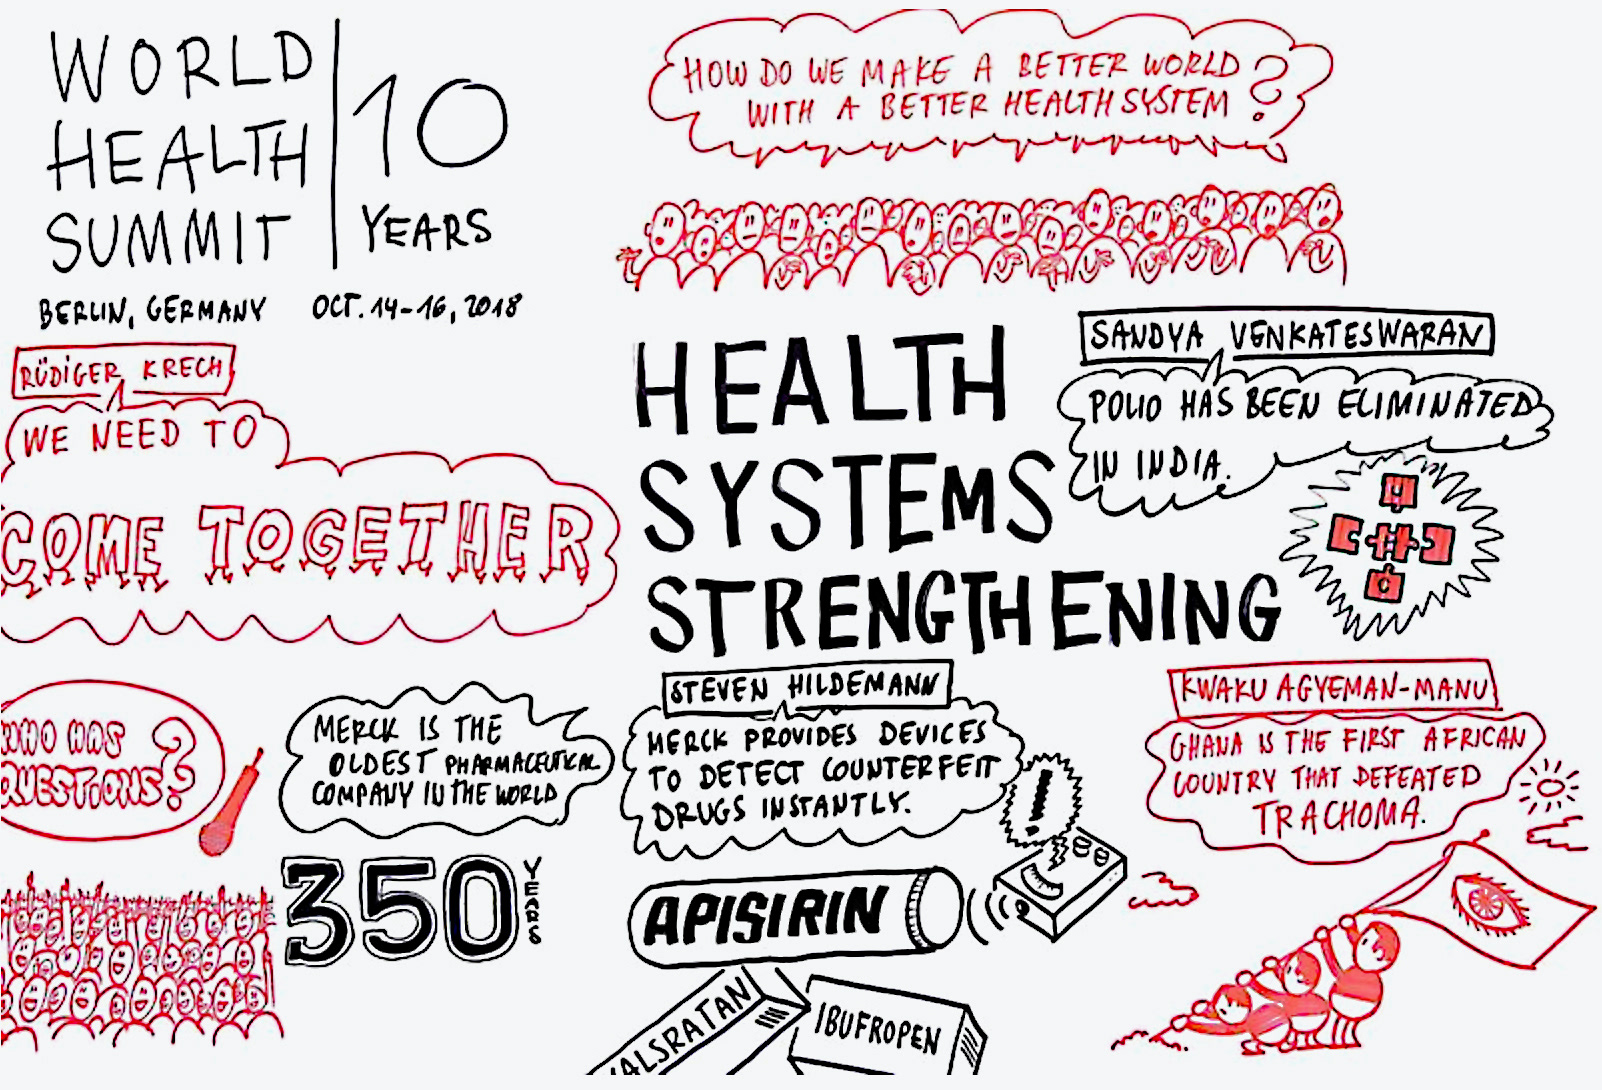 WORLD
HEALTH
SUMMIT
10
YEARS
BERLIN, GERMANY OCT. 14-16, 2018
HOW DO WE MAKE A BETTER WORLD
WITH A BETTER HEALTH SYSTEM ?
RÜDIGER KRECH
WE NEED TO
COME TOGETHER
HEALTH
SYSTEMS
STRENGTHENING
SANDYA VENKATESWARAN
POLIO HAS BEEN ELIMINATED
IN INDIA.
WHO HAS
QUESTIONS?
MERCK IS THE
OLDEST PHARMACEUTICAL
COMPANY IN THE WORLD
350 YEARS
STEVEN HILDEMANN
MERCK PROVIDES DEVICES
TO DETECT COUNTERFEIT
DRUGS INSTANTLY.
!
APISIRIN
ALSRATAN
IBUFROPEN
KWAKU AGYEMAN-MANU
GHANA IS THE FIRST AFRICAN
COUNTRY THAT DEFEATED
TRACHOMA.